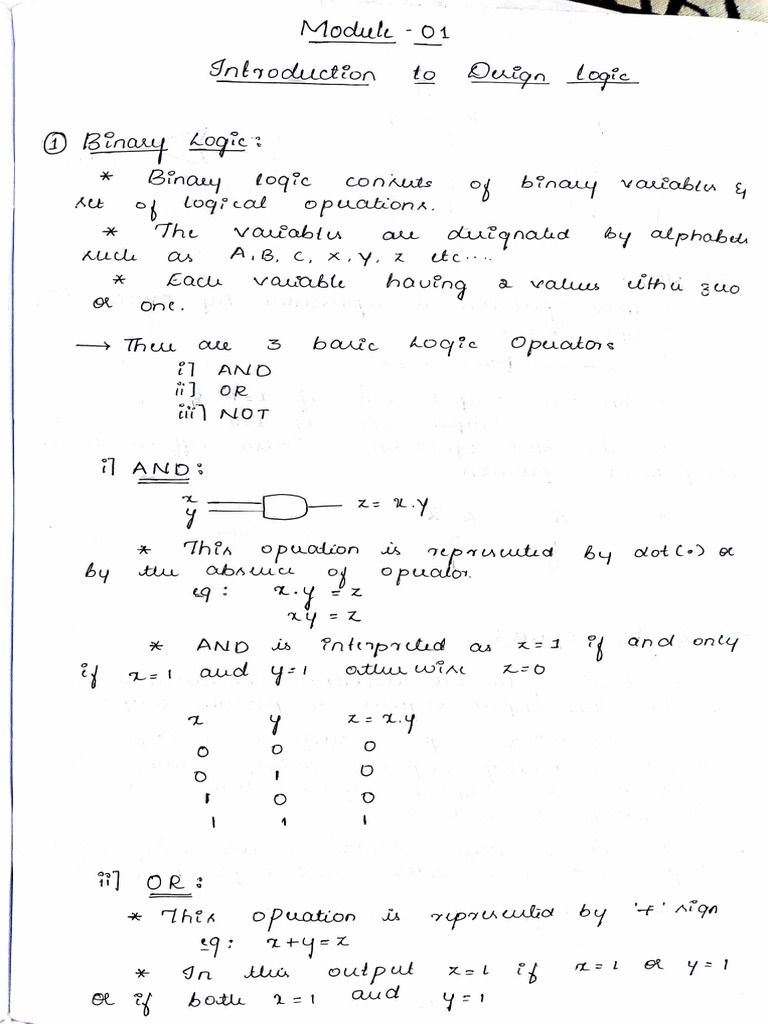 Module - 01
Introduction to Design Logic
① Binary Logic :
* Binary logic consists of binary variables &
set of logical operations.
* The variables are designated by alphabets
such as A, B, C, X, Y, Z etc....
* Each variable having 2 values either zero
or one.
→ There are 3 basic Logic Operators
i] AND
ii] OR
iii] NOT
i] AND :
x
y
z = x.y
* This operation is represented by dot(.) or
by the absence of operator.
eg : x.y = z
xy = z
* AND is interpreted as z=1 if and only
if x=1 and y=1 otherwise z=0
x y z = x.y
0 0 0
0 1 0
1 0 0
1 1 1
ii] OR :
* This operation is represented by '+' sign
eg: x+y=z
* In this output z=1 if x=1 or y=1
or if both x=1 and y=1